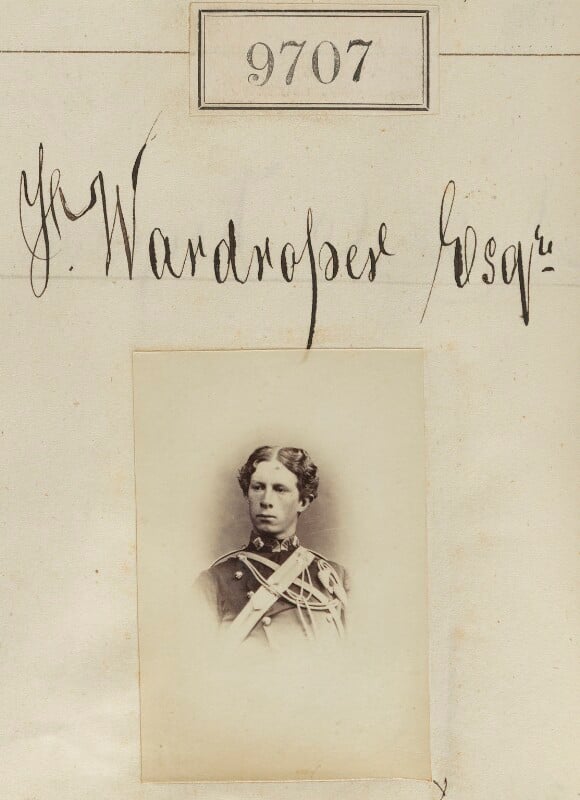 9707
Wardroper Esqre